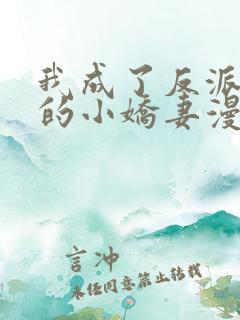 我成了反派
的小嬌妻漫
言冲
未任同意禁止转载